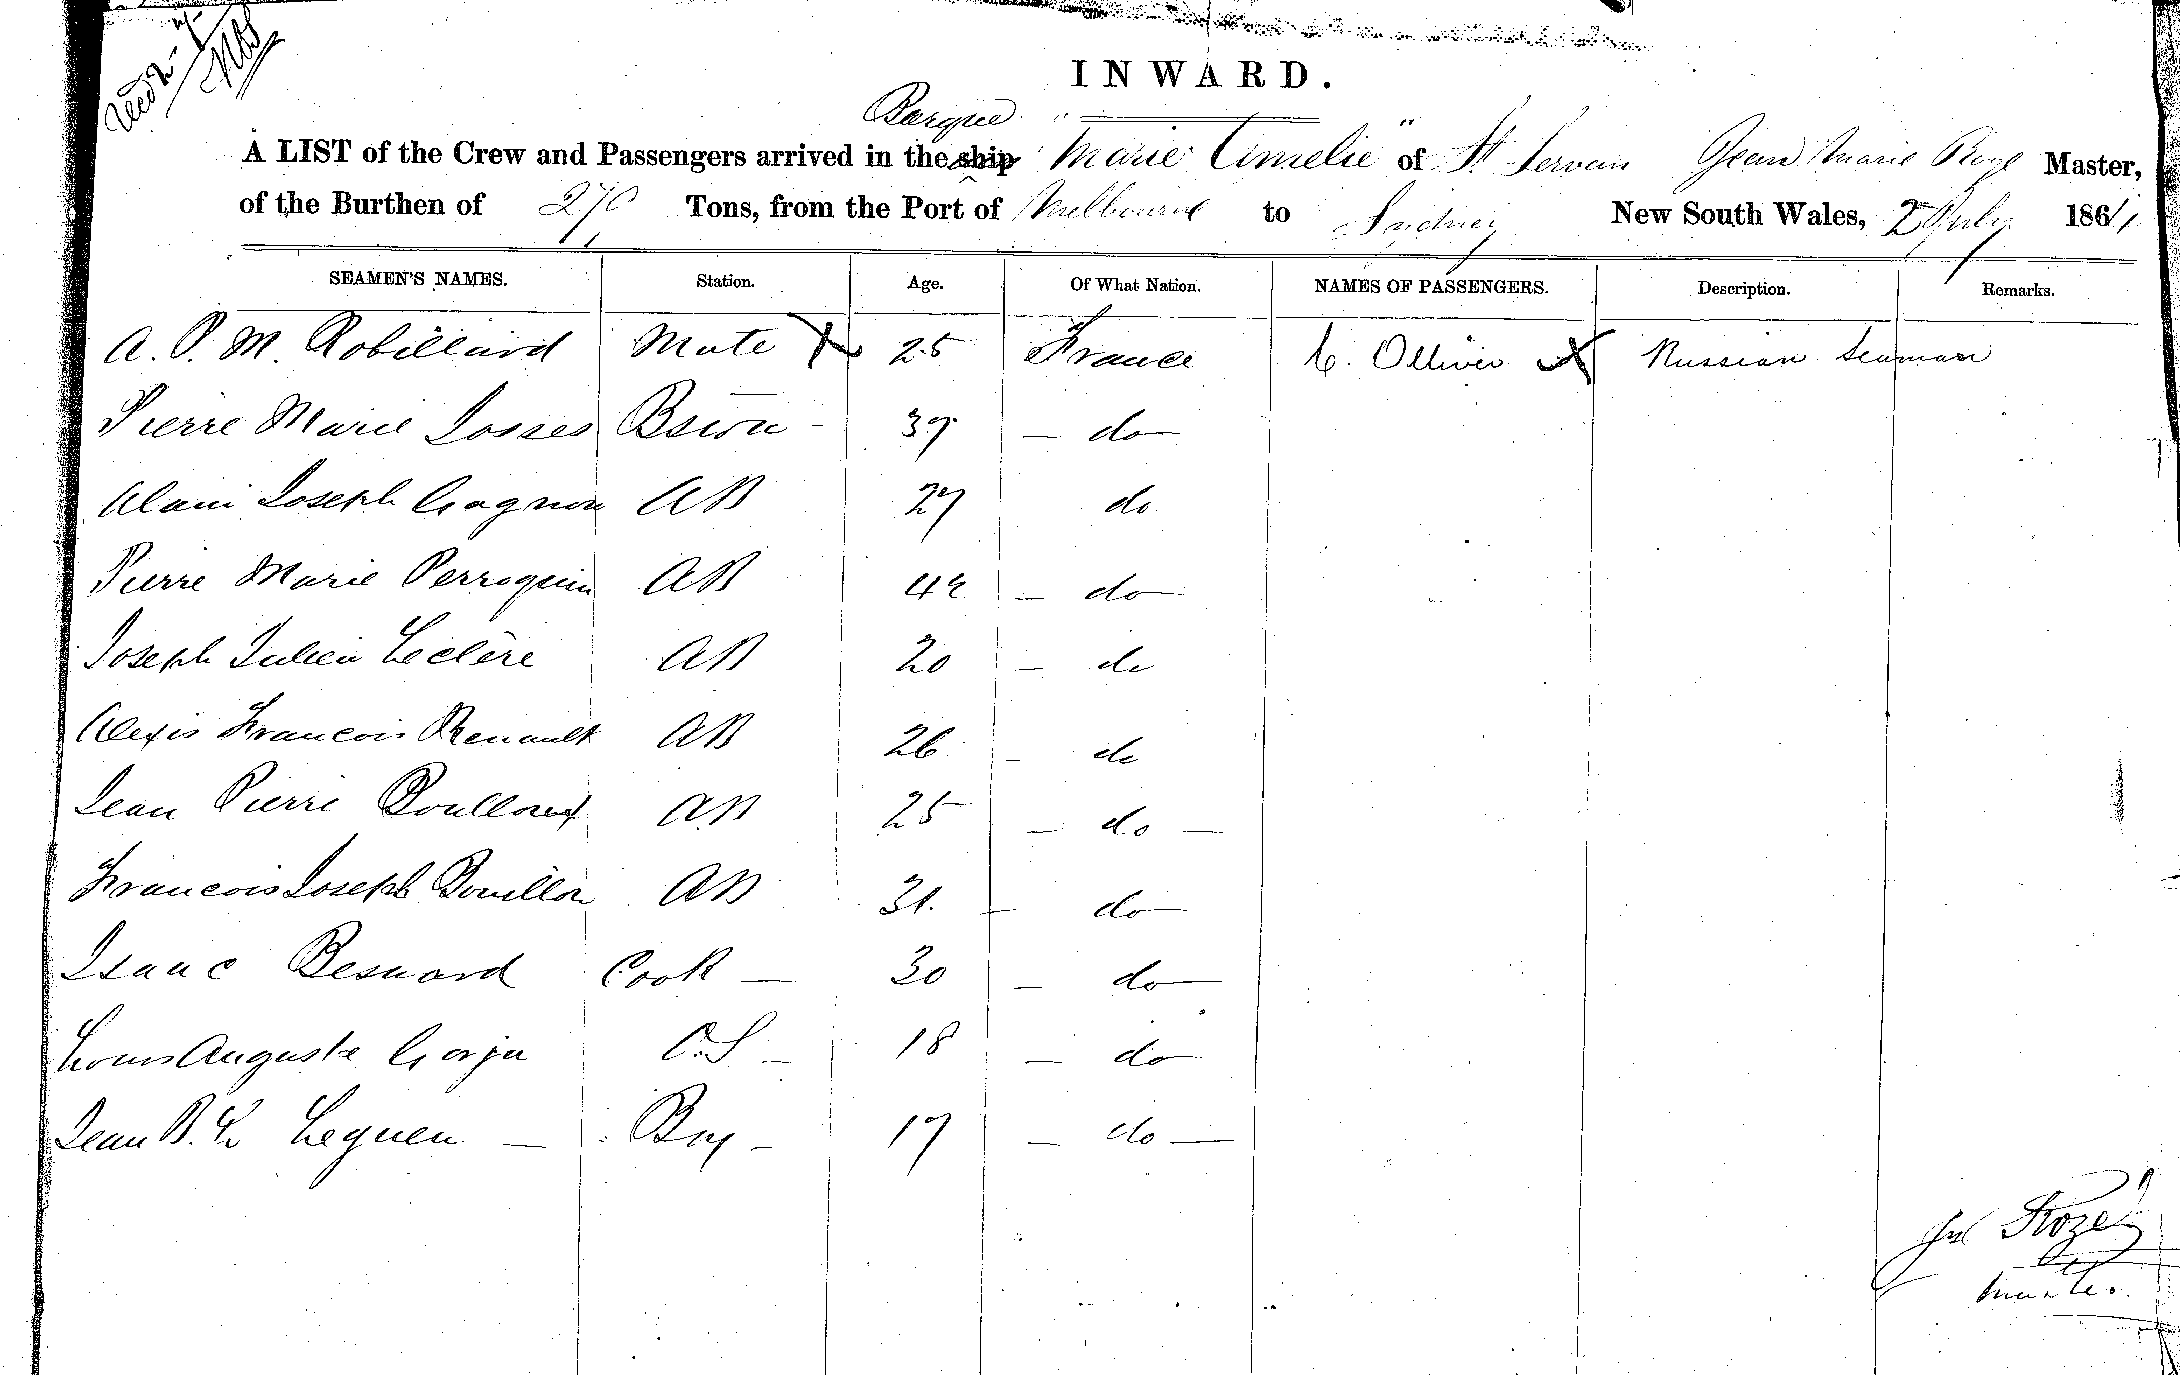 INWARD.
Barque
A LIST of the Crew and Passengers arrived in the ship "Marie Amelie" of St Servan Jean Marie Rozé Master,
of the Burthen of 270 Tons, from the Port of Melbourne to Sydney New South Wales, 2 July 1861
SEAMEN'S NAMES. Station. Age. Of What Nation. NAMES OF PASSENGERS. Description. Remarks.
A. P. M. Robillard Mate X 25 France C. Olliver X Russian Seaman
Pierre Marie Josses Bswn - 39 - do -
Alain Joseph Gagnon AB 27 do
Pierre Marie Perroquin AB 42 - do -
Joseph Julien Leclère AB 20 - do
Alexis Francois Renault AB 26 - do
Jean Pierre AB 25 - do -
Francois Joseph Bouillon AB 31. - do -
Isaac Besnard Cook - 30 - do -
Louis Auguste Gorju O.S - 18 - do -
Jean B. Leguen - Boy - 17 - do -
Rozé
master